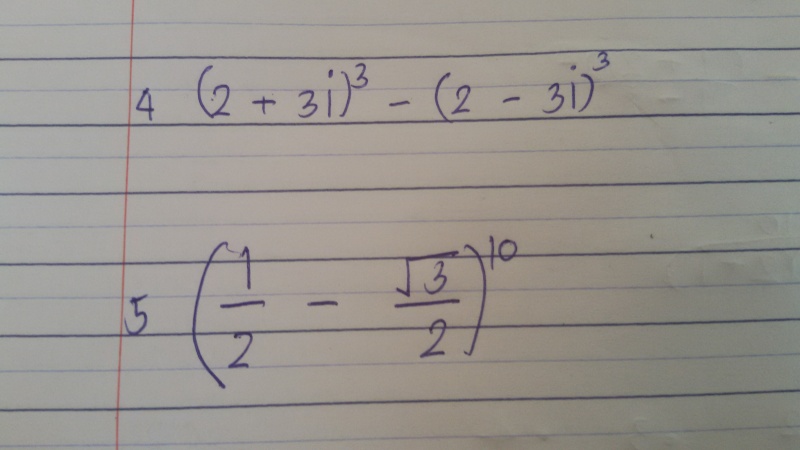 4 (2 + 3i)³ - (2 - 3i)³
5 (1/2 - √3/2)¹⁰